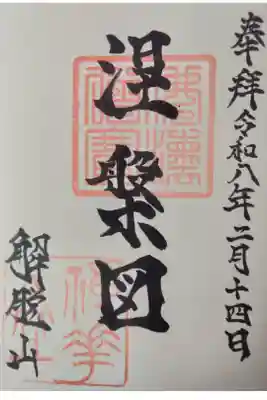 奉拝 令和八年二月十四日
涅槃図
解脱山